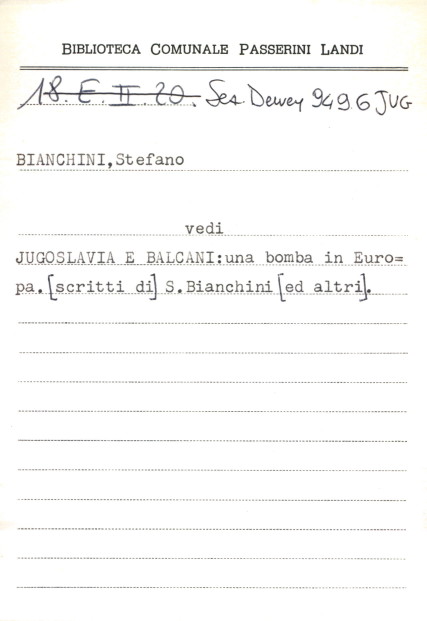 BIBLIOTECA COMUNALE PASSERINI LANDI
18. E. II. 20. Ses. Dewey 949.6 JUG
BIANCHINI,Stefano
vedi
JUGOSLAVIA E BALCANI:una bomba in Euro=
pa.[scritti di] S.Bianchini [ed altri].